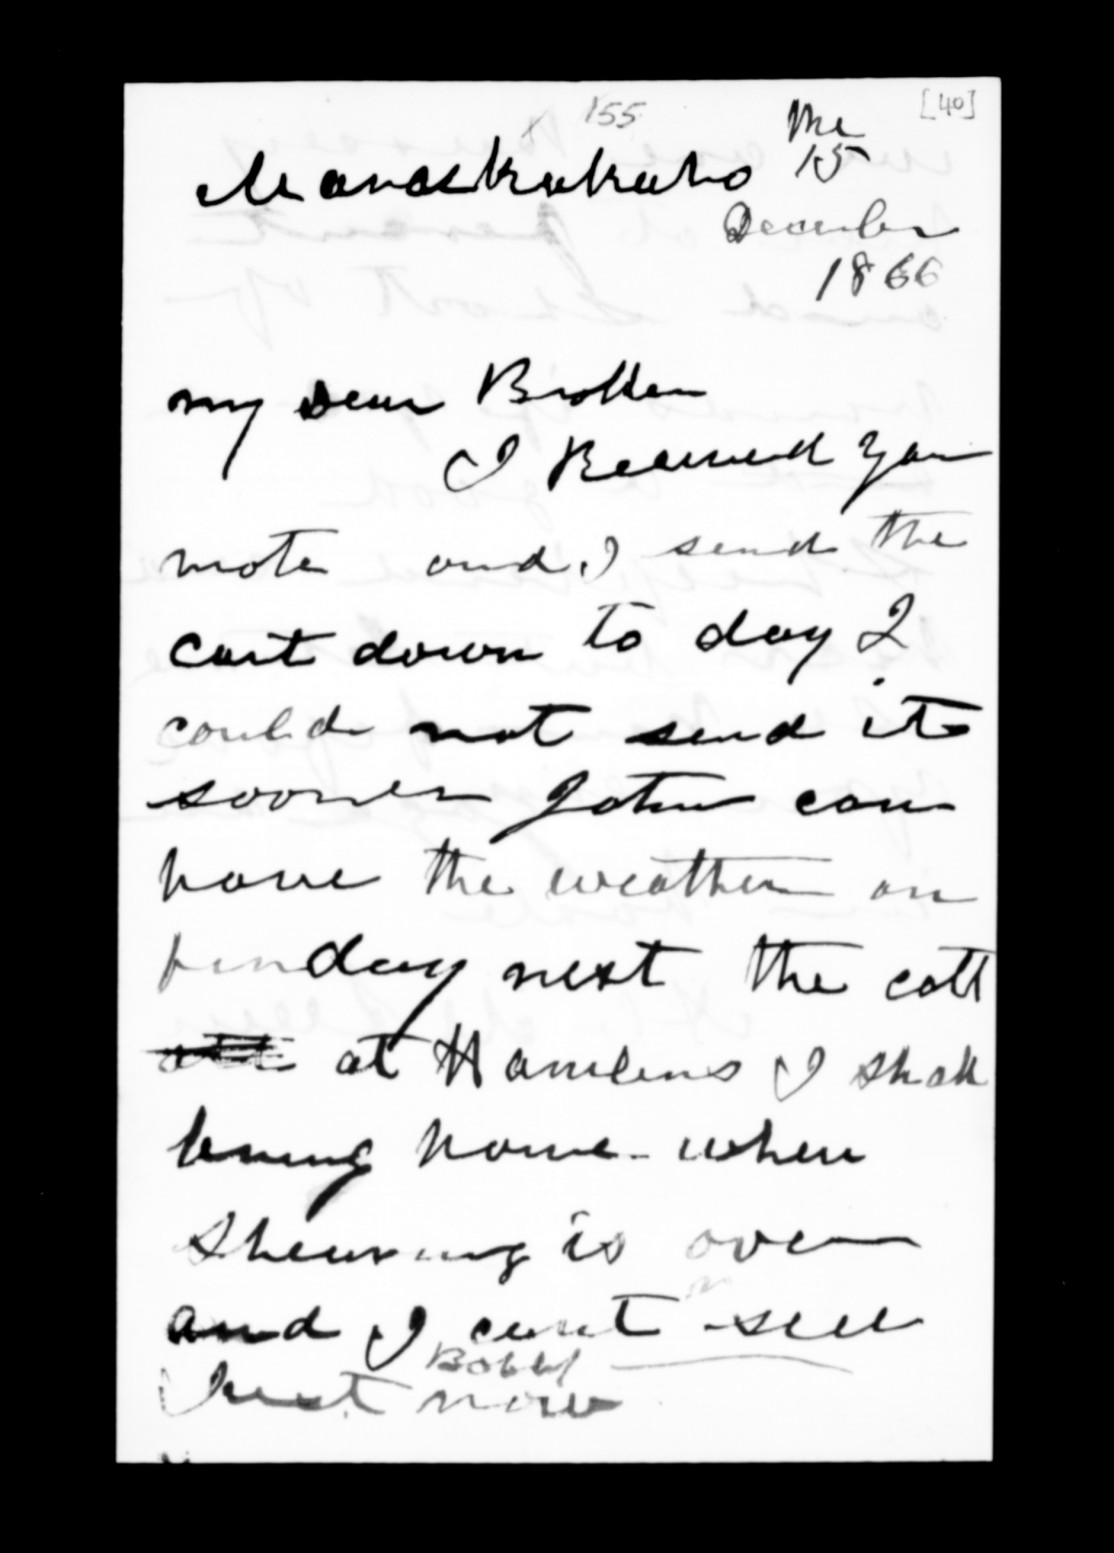 155
[40]
the
15
December
1866
my Dear Brother
I Received your
note and I send the
cart down to day I
could not send it
sooner John can
have the weather on
day next the colt
at Hamlins I shall
bring home when
Shearing is over
and I cant sell
Bobby
Just now